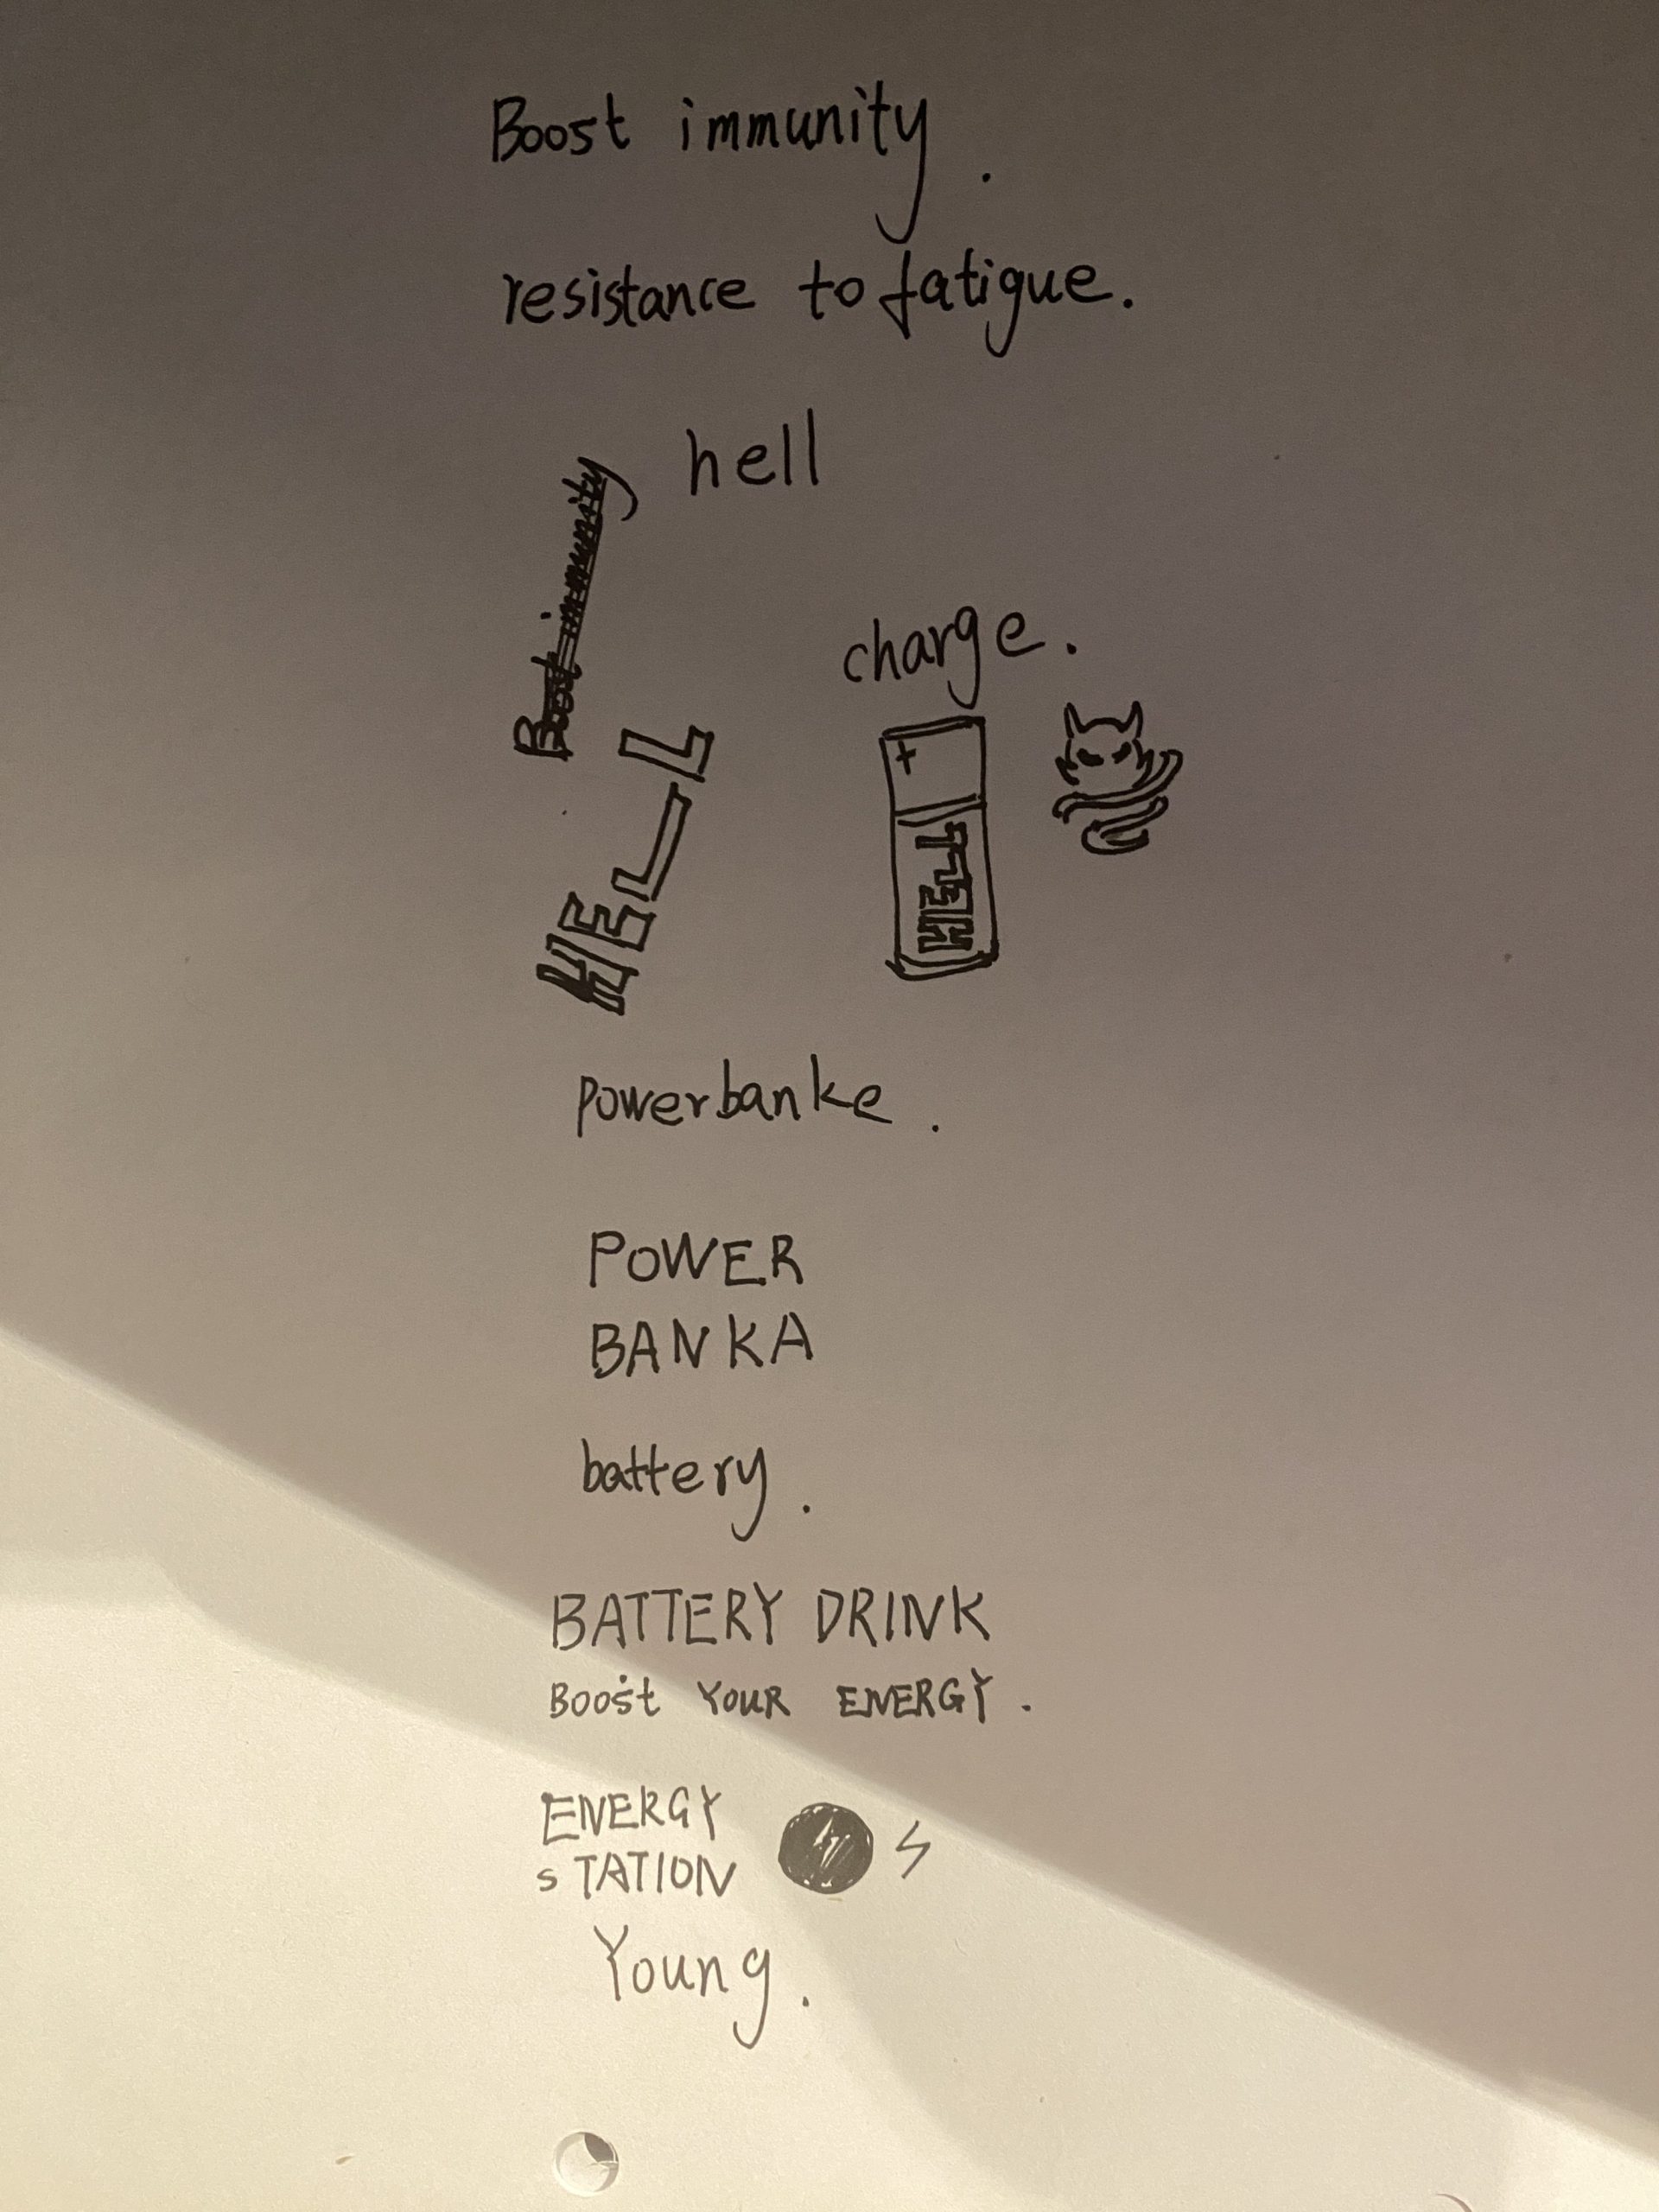 Boost immunity.
resistance to fatigue.
hell
Boost immunity
HELL
charge.
+
HELL
powerbanke.
POWER
BANKA
battery.
BATTERY DRINK
BOOST YOUR ENERGY.
ENERGY
STATION
Young.